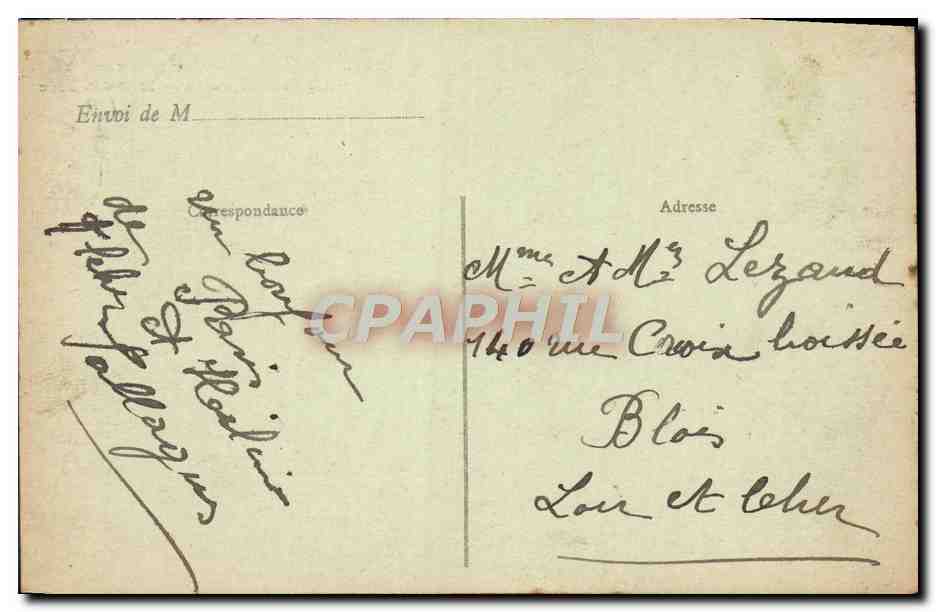 Envoi de M
Correspondance
un bonjour
Paris
de
Adresse
Mme et Mr Lezaud
140 rue Croix boissée
Blois
Loir et Cher
CPAPHIL